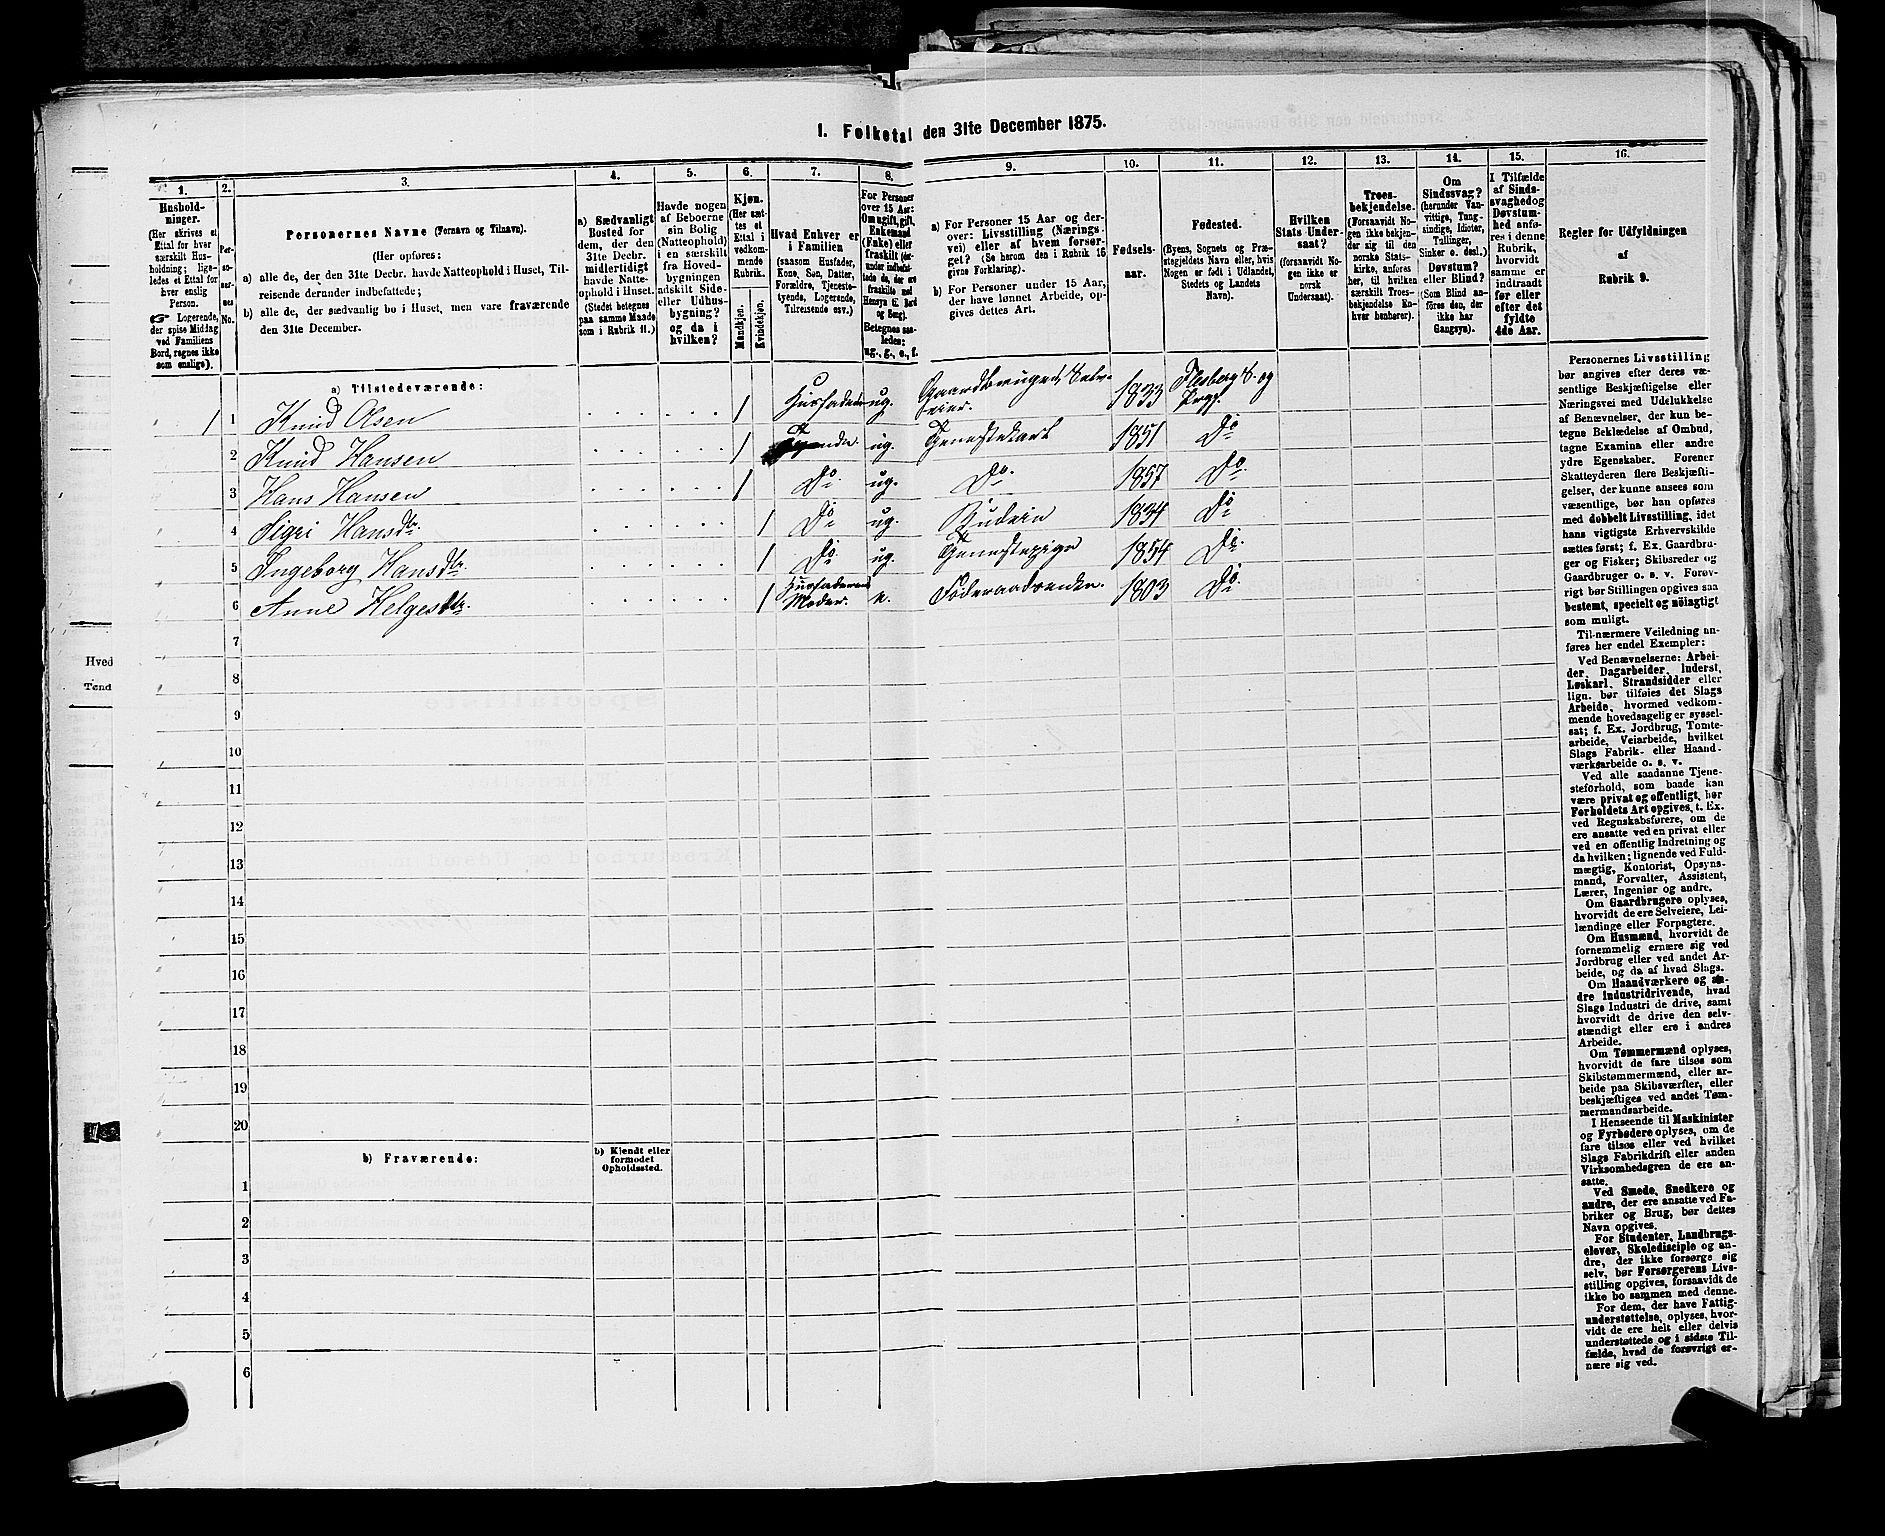 1. Folketal den 31te December 1875.
1. 2. 3. 4. 5. 6. 7. 8. 9. 10. 11. 12. 13. 14. 15. 16.
Hushold-
ninger.
(Her skrives et
Ettal for hver
særskilt Hus-
holdning; lige-
ledes et Ettal for
hver enslig
Person.
☞ Logerende,
der spise Middag
ved Familiens
Bord, regnes ikke
som enslige).
Per-
so-
ner-
nes
No.
Personernes Navne (Fornavn og Tilnavn).
(Her opføres:
a) alle de, der den 31te Decbr. havde Natteophold i Huset, Til-
reisende derunder indbefattede;
b) alle de, der sædvanlig bo i Huset, men vare fraværende
den 31te December.
a) Sædvanligt
Bosted for
dem, der den
31te Decbr.
midlertidigt
havde Natte-
ophold i Huset.
(Stedet betegnes
paa samme Maade
som i Rubrik 11.)
Havde nogen
af Beboerne
sin Bolig
(Natteophold)
i en særskilt
fra Hoved-
bygningen
adskilt Side-
eller Udhus-
bygning?
og da i
hvilken?
Kjøn.
(Her sæt-
tes et
Ettal i
vedkom-
mende
Rubrik.
Mandkjøn.
Kvindekjøn.
Hvad Enhver er
i Familien
(saasom Husfader,
Kone, Søn, Datter,
Forældre, Tjeneste-
tyende, Logerende,
Tilreisende osv.)
For Personer
over 15 Aar:
Om ugift, gift,
Enkemand
(Enke) eller
fraskilt (der-
under indbefat-
tede de, der ere
fraskilte med
Hensyn til Bord
og Seng).
Betegnes saa-
ledes:
ug., g., e., f.
a) For Personer 15 Aar og der-
over: Livsstilling (Nærings-
vei) eller af hvem forsør-
get? (Se herom den i Rubrik 16
givne Forklaring).
b) For Personer under 15 Aar,
der have lønnet Arbeide, op-
gives dettes Art.
Fødsels-
aar.
Fødested.
(Byens, Sognets og Præ-
stegjeldets Navn eller, hvis
Nogen er født i Udlandet,
Stedets og Landets
Navn).
Hvilken
Stats Under-
saat?
(forsaavidt No-
gen ikke er
norsk
Undersaat).
Troes-
bekjendelse.
(Forsaavidt No-
gen ikke bekjen-
der sig til den
norske Stats-
kirke, anføres
her, til hvilken
særskilt Troes-
bekjendelse En-
hver henhører).
Om
Sindssvag?
(herunder Van-
vittige, Tung-
sindige, Idioter,
Tullinger,
Sinker o. desl.)
Døvstum?
eller Blind?
(Som Blind an-
føres den, der
ikke har
Gangsyn).
I Tilfælde
af Sinds-
svaghed og
Døvstum-
hed anfø-
res i denne
Rubrik,
hvorvidt
samme er
indtraadt
før eller
efter det
fyldte
4de Aar.
Regler for Udfyldningen
af
Rubrik 9.
a) Tilstedeværende:
1 1 Knud Olsen 1 Husfader ug. Gaardbruger, Selveier. 1833 Flesberg S. og Prgj.
2 Knud Hansen 1 Tyende. ug. Tjenestekarl 1851 Do
3 Hans Hansen 1 Do ug. Do. 1857 Do
4 Sigri Hansdtr. 1 Do ug. Budeie 1834 Do
5 Ingeborg Hansdtr. 1 Do. ug. Tjenestepige 1854 Do.
6 Anne Helgesdtr. 1 Husfaderens Moder. e. Føderaadsenke. 1803 Do.
7
8
9
10
11
12
13
14
15
16
17
18
19
20
b) Fraværende:
b) Kjendt eller
formodet
Opholdssted.
1
2
3
4
5
6
Personernes Livsstilling
bør angives efter deres væ-
sentlige Beskjæftigelse eller
Næringsvei med Udelukkelse
af Benævnelser, der kun be-
tegne Beklædelse af Ombud,
tagne Examina eller andre
ydre Egenskaber. Forener
Skatteyderen flere Beskjæfti-
gelser, der kunne ansees som
væsentlige, bør han opføres
med dobbelt Livsstilling, idet
hans vigtigste Erhvervskilde
sættes først; f. Ex. Gaardbru-
ger og Fisker; Skibsreder og
Gaardbruger o. s. v. Forøv-
rigt bør Stillingen opgives saa
bestemt, specielt og nøiagtigt
som muligt.
Til nærmere Veiledning an-
føres her endel Exempler:
Ved Benævnelserne: Arbei-
der, Dagarbeider, Inderst,
Løskarl, Strandsidder eller
lign. bør tilføies det Slags
Arbeide, hvormed vedkom-
mende hovedsagelig er syssel-
sat; f. Ex. Jordbrug, Tomte-
arbeide, Veiarbeide, hvilket
Slags Fabrik- eller Haand-
værksarbeide o. s. v.
Ved alle saadanne Tjene-
steforhold, som baade kan
være privat og offentligt, bør
Forholdets Art opgives, t. Ex.
ved Regnskabsførere, om de
ere ansatte ved en privat eller
ved en offentlig Indretning og
da hvilken; lignende ved Fuld-
mægtig, Kontorist, Opsyns-
mand, Forvalter, Assistent,
Lærer, Ingeniør og andre.
Om Gaardbrugere oplyses,
hvorvidt de ere Selveiere, Lei-
lændinge eller Forpagtere.
Om Husmænd, hvorvidt de
fornemmelig ernære sig ved
Jordbrug eller ved andet Ar-
beide, og da af hvad Slags.
Om Haandværkere og an-
dre Industridrivende, hvad
Slags Industri de drive, samt
hvorvidt de drive den selv-
stændigt eller ere i andres
Arbeide.
Om Tømmermænd oplyses,
hvorvidt de fare tilsøs som
Skibstømmermænd, eller ar-
beide paa Skibsværfter, eller
beskjæftiges ved andet Tøm-
mermandsarbeide.
I Henseende til Maskinister
og Fyrbødere oplyses, om de
fare tilsøs eller ved hvilket
Slags Fabrikdrift eller anden
Virksomhedsgren de ere an-
satte.
Ved Smede, Snedkere og
andre, der ere ansatte ved Fa-
briker og Brug, bør dettes
Navn opgives.
For Studenter, Landbrugs-
elever, Skoledisciple og an-
dre, der ikke forsørge sig
selv, bør Forsørgerens Livs-
stilling opgives, forsaavidt de
ikke bo sammen med denne.
For dem, der have Fattig-
understøttelse, oplyses, hvor-
vidt de ere helt eller delvis
understøttede og i sidste Til-
fælde, hvad de forøvrigt er-
nære sig ved.
Hved
Tønd